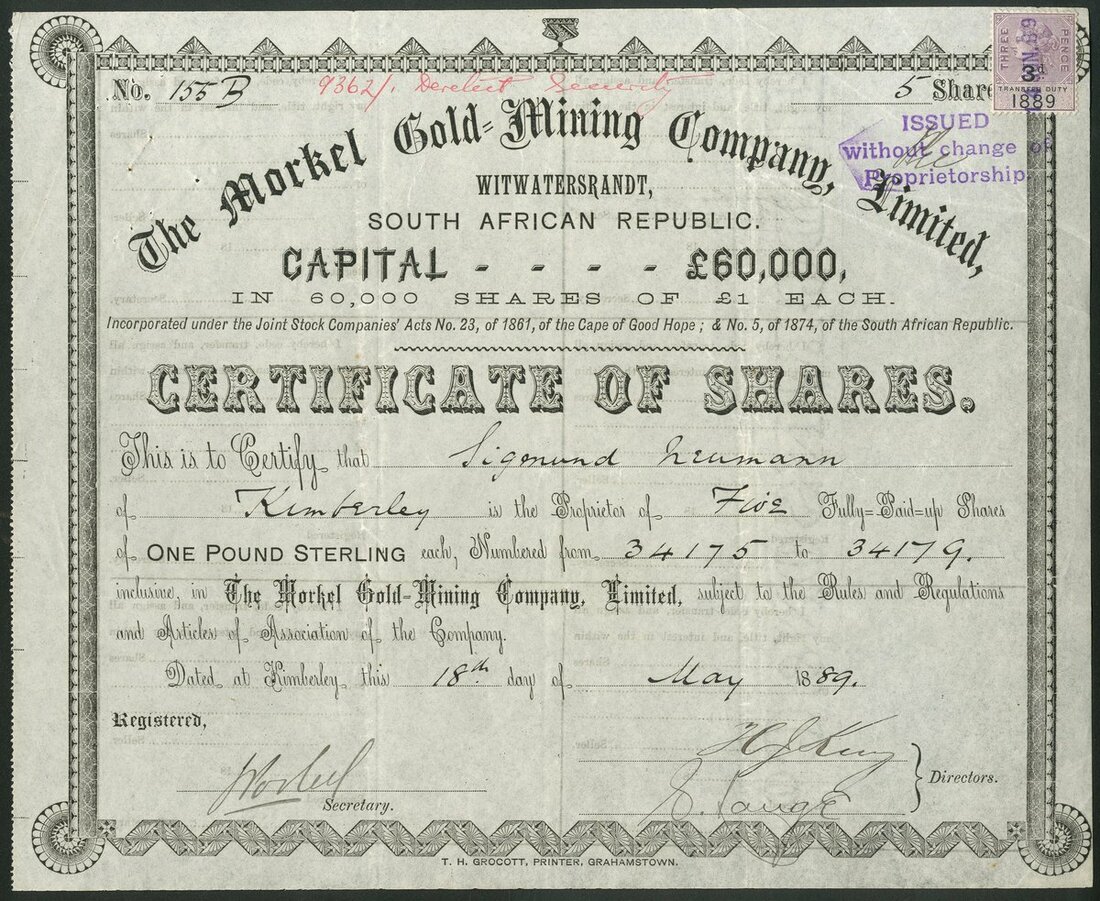 No. 155 B
9362/. Derelict Security
5 Shares
THREE PENCE
3d
TRANSFER DUTY
1889
ISSUED
without change of
Proprietorship.
The Morkel Gold-Mining Company, Limited,
WITWATERSRANDT,
SOUTH AFRICAN REPUBLIC.
CAPITAL - - - - £60,000,
IN 60,000 SHARES OF £1 EACH.
Incorporated under the Joint Stock Companies' Acts No. 23, of 1861, of the Cape of Good Hope; & No. 5, of 1874, of the South African Republic.
CERTIFICATE OF SHARES.
This is to Certify that Sigmund Neumann
of Kimberley is the Proprietor of Five Fully-Paid-up Shares
of ONE POUND STERLING each, Numbered from 34175 to 34179.
inclusive, in The Morkel Gold-Mining Company, Limited, subject to the Rules and Regulations
and Articles of Association of the Company.
Dated at Kimberley this 18th day of May 1889.
Registered,
H J King
Directors.
Secretary.
T. H. GROCOTT, PRINTER, GRAHAMSTOWN.